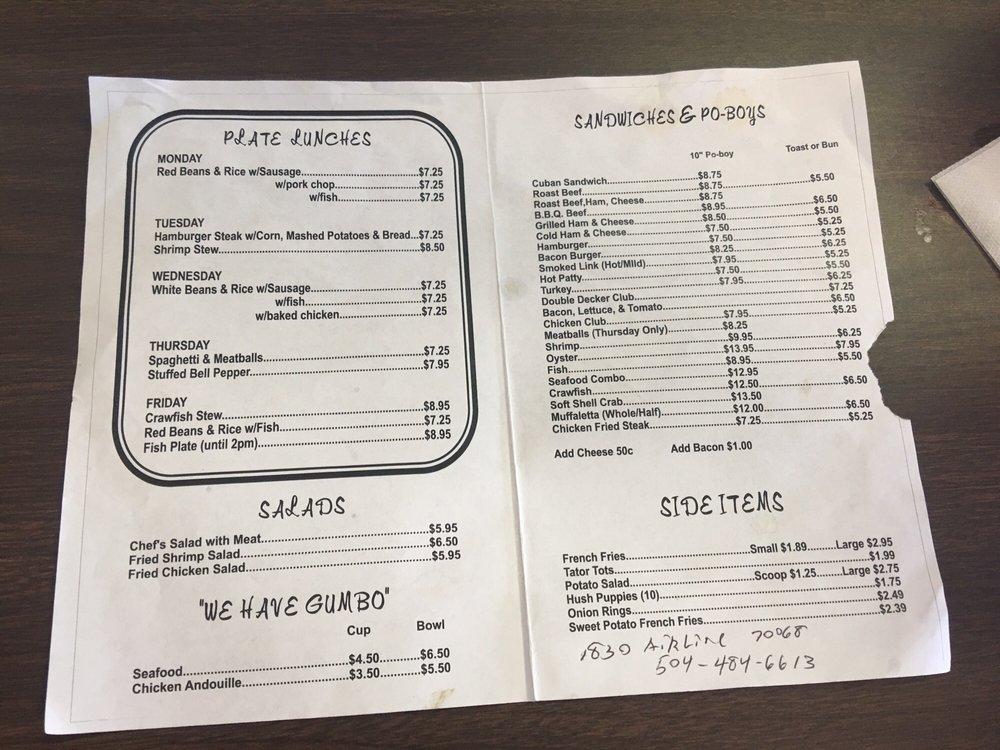 PLATE LUNCHES
MONDAY
Red Beans & Rice w/Sausage...$7.25
w/pork chop...$7.25
w/fish...$7.25
TUESDAY
Hamburger Steak w/Corn, Mashed Potatoes & Bread...$7.25
Shrimp Stew...$8.50
WEDNESDAY
White Beans & Rice w/Sausage...$7.25
w/fish...$7.25
w/baked chicken...$7.25
THURSDAY
Spaghetti & Meatballs...$7.25
Stuffed Bell Pepper...$7.95
FRIDAY
Crawfish Stew...$8.95
Red Beans & Rice w/Fish...$7.25
Fish Plate (until 2pm)...$8.95
SALADS
Chef's Salad with Meat...$5.95
Fried Shrimp Salad...$6.50
Fried Chicken Salad...$5.95
"WE HAVE GUMBO"
Cup Bowl
Seafood...$4.50...$6.50
Chicken Andouille...$3.50...$5.50
SANDWICHES & PO-BOYS
10" Po-boy Toast or Bun
Cuban Sandwich...$8.75
Roast Beef...$8.75...$5.50
Roast Beef,Ham, Cheese...$8.75
B.B.Q. Beef...$8.95...$6.50
Grilled Ham & Cheese...$8.50...$5.50
Cold Ham & Cheese...$7.50...$5.25
Hamburger...$7.50...$5.25
Bacon Burger...$8.25...$6.25
Smoked Link (Hot/Mild)...$7.95...$5.25
Hot Patty...$7.50...$5.50
Turkey...$7.95...$6.25
Double Decker Club...$7.25
Bacon, Lettuce, & Tomato...$6.50
Chicken Club...$7.95...$5.25
Meatballs (Thursday Only)...$8.25
Shrimp...$9.95...$6.25
Oyster...$13.95...$7.95
Fish...$8.95...$5.50
Seafood Combo...$12.95
Crawfish...$12.50...$6.50
Soft Shell Crab...$13.50
Muffaletta (Whole/Half)...$12.00...$6.50
Chicken Fried Steak...$7.25...$5.25
Add Cheese 50c Add Bacon $1.00
SIDE ITEMS
French Fries...Small $1.89...Large $2.95
Tator Tots...$1.99
Potato Salad...Scoop $1.25...Large $2.75
Hush Puppies (10)...$1.75
Onion Rings...$2.49
Sweet Potato French Fries...$2.39
1830 AIRLINE 70068
504-484-6613